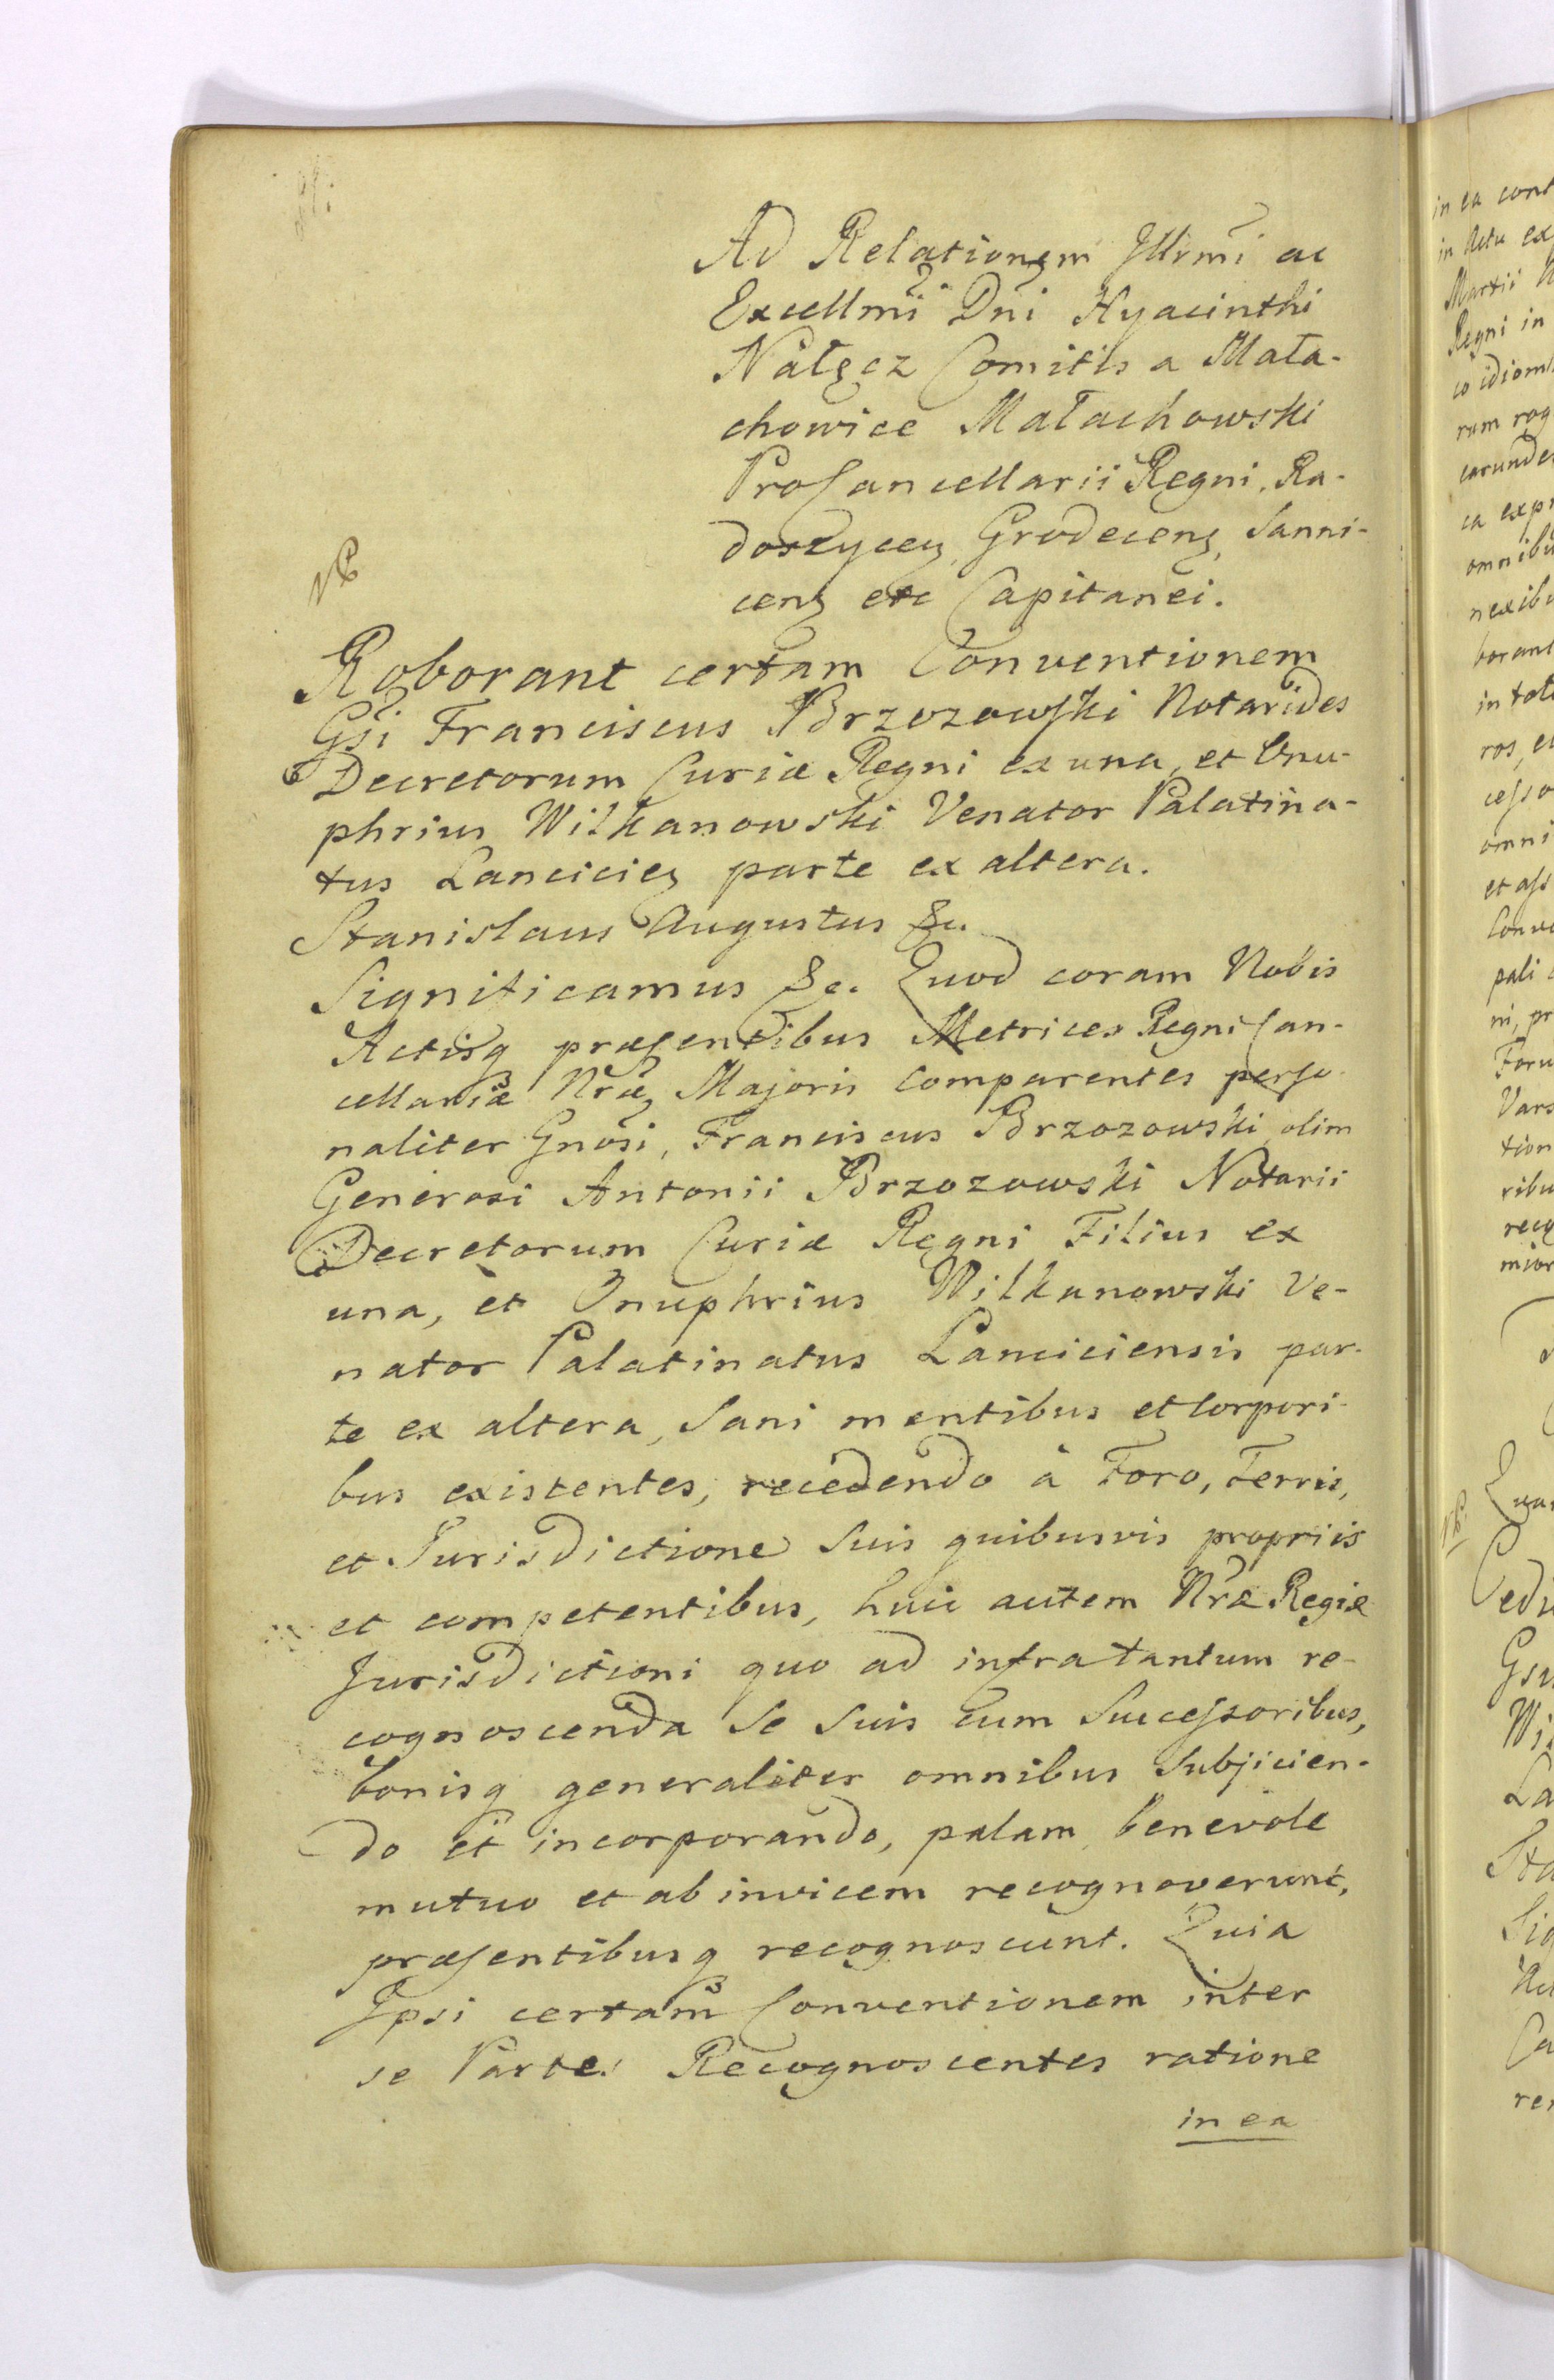 Ad Relationem Jllrmi ac
Excellmi Dni Hyacinthi
Nałęcz Comitis a Mała-
chowice Małachowski
ProCancellarii Regni, Ra-
doszyceƷ, GrodecenƷ, Sanni-
cenƷ etc Capitanei.
NB
Roborant certam Conventionem
Gsi Franciscus Brzozowski Notarides
Decretorum Curiæ Regni ex una, et Onu-
phrius Wilkanowski Venator Palatina-
tus LancicieƷ parte ex altera.
Stanislaus Augustus &c.
Significamus &c. Quod coram Nobis
Actisq præsentibus Metrices Regni Can-
cellariæ Nræ Majoris Comparentes perso-
naliter Gnosi, Franciscus Brzozowski, olim
Generosi Antonii Brzozowski Notarii
Decretorum Curiæ Regni Filius ex
una, et Onuphrius Wilkanowski Ve-
nator Palatinatus Lanciciensis par-
te ex altera, Sani mentibus et Corpori-
bus existentes, recedendo à Foro, Terris,
et Jurisdictione Suis quibusvis propriis
et competentibus, huic autem Nræ Regiæ
Jurisdictioni quo ad infra tantum re-
cognoscenda Se Suis cum Successoribus,
bonisq generaliter omnibus Subjicien-
do et incorporando, palam benevole
mutuo et ab invicem recognoverunt,
præsentibusq recognoscunt. Quia
Jpsi certam Conventionem inter
se Partes Recognoscentes ratione
in ea
in ea cont
in Actu ex
Martii
Regni in
co idiom
rum rog
earunde
ca expr
omnibu
nexibu
borant
in tot
ros, e
cesso
omni
et ass
Conve
pali
ni, pr
Foru
Vars
tion
ribu
recog
mior
NB.
Quar
Cedu
Gsu
Wi
La
Sta
Sig
Act
Ca
re